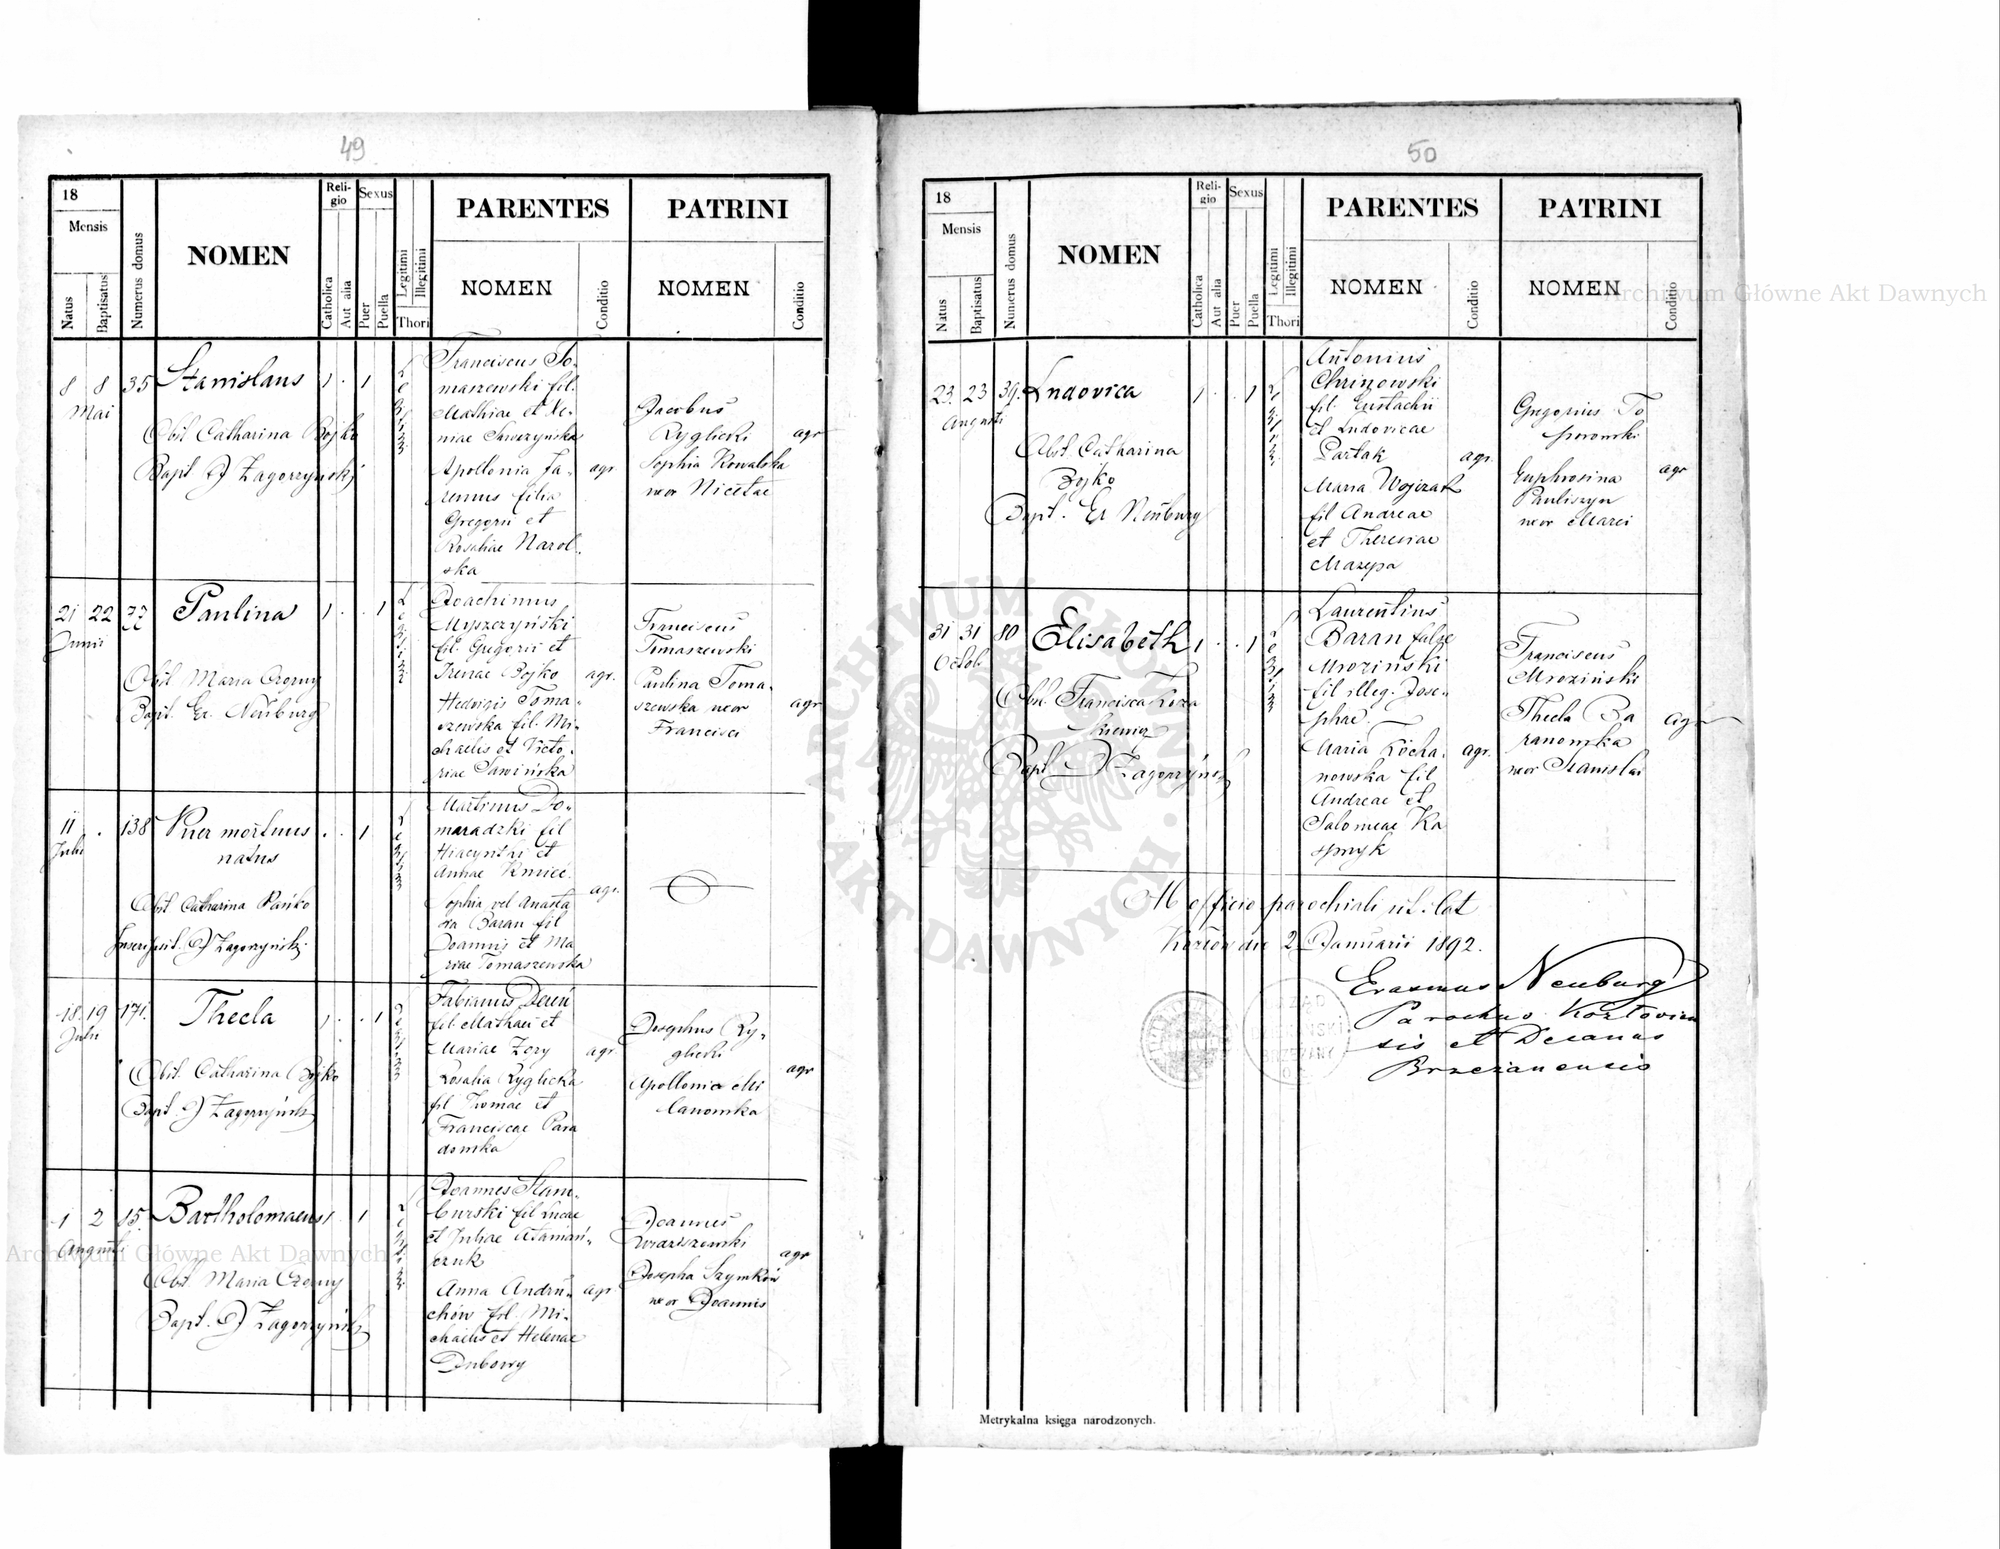 49
18
Mensis
Natus
Baptisatus
Numerus domus
NOMEN
Religio
Catholica
Aut alia
Sexus
Puer
Puella
Legitimi
Illegitimi
Thori
PARENTES
NOMEN
Conditio
PATRINI
NOMEN
Conditio
8 8 35 Stanislaus 1 . 1
Mai
Obst Catharina Bojko
Bapt J Zagorzyński
Franciscus To-
maszewski fil.
Mathiae et Xe-
niae Sawczyńska
Apollonia Ja-
remus filia
Gregorii et
Rosaliae Narol-
ska
agr
Jacobus
Ryglicki
Sophia Kowalska
uxor Nicetae
agr
21 22 77 Paulina 1 . . 1
Junii
Obst Maria Czorny
Bapt. Er. Neuburg
Joachimus
Myszczyński
fil. Gregorii et
Irenae Bojko
Hedvigis Toma-
szewska fil. Mi-
chaelis et Victo-
riae Sawińska
agr.
Franciscus
Tomaszewski
Paulina Toma-
szewska uxor
Francisci
agr
11 . 138 Puer mortuus . . 1
Julii
natus
Obst Catharina Pańko
Inscripsit. J Zagorzyński
Martinus Do-
maradzki fil
Hiacynthi et
Annae Kmieć
Sophia vel Anasta
sia Baran fil
Joannis et Ma
riae Tomaszewska
agr.
18 19 171. Thecla 1 . . 1
Julii
Obst. Catharina Bojko
Bapt. J Zagorzyński
Fabianus Dereń
fil. Mathaei et
Mariae Zory
Rosalia Ryglicka
fil Thomae et
Franciscae Para
domska
agr.
Josephus Ry-
glicki
Apollonia Mi
lanowska
agr
1 2 15. Bartholomaeus 1 . 1
Augusti
Obst. Maria Czorny
Bapt. J Zagorzyński
Joannes Stam-
burski fil Lucae
et Juliae Atamań-
czuk
Anna Andru-
chów fil. Mi-
chaelis et Helenae
Dubowy
agr
Joannes
Wraziszewski
Josepha Szymków
uxor Joannis
agr
50
18
Mensis
Natus
Baptisatus
Numerus domus
NOMEN
Religio
Catholica
Aut alia
Sexus
Puer
Puella
Legitimi
Illegitimi
Thori
PARENTES
NOMEN
Conditio
PATRINI
NOMEN
Conditio
23. 23 39. Ludovica 1 . . 1
Augusti
Obst. Catharina
Bojko
Bapt. Er Neuburg
Antonius
Chrinowski
fil. Eustachii
et Ludovicae
Partak
Maria Wojczak
fil Andreae
et Theresiae
Mazepa
agr.
Gregorius To
porowski
Euphrosina
Pauliszyn
uxor Marci
agr
31 31 80 Elisabeth 1 . . 1
Octob
Obst. Francisca Koza
kiewicz
Bapt J Zagorzyński
Laurentius
Baran false
Mroziński
fil illeg. Jose-
phae
Maria Kocha-
nowska fil
Andreae et
Salomeae Ka
spryk
agr.
Franciscus
Mroziński
Thecla Ba
ranowska
uxor Stanislai
agr
Ab officio parochiali rit. lat
Kozłów die 2 Januarii 1892.
Erasmus Neuburg
Parochus Kozłovien
sis et Decanus
Brzezanensis
Metrykalna księga narodzonych.
Archiwum Główne Akt Dawnych
Archiwum Główne Akt Dawnych
ARCHIWUM GŁÓWNE AKT DAWNYCH